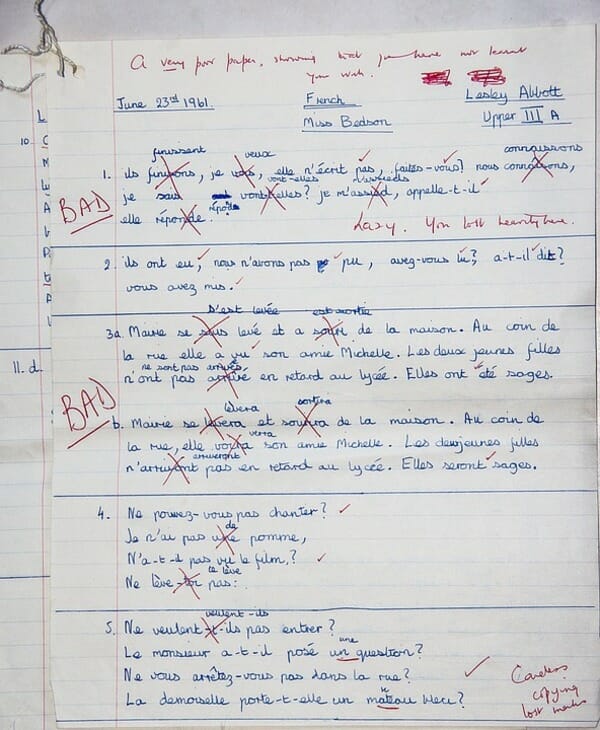 A very poor paper, showing that you have not learnt
your work.
June 23rd 1961. French Lesley Abbott
Miss Bedson Upper III A
finissent veux connaissons
1. ils finissons, je vous, elle n'écrit pas, faites-vous? nous connaisons,
vont-elles m'assieds
je sais vont elles? je m'assied, appelle-t-il
BAD
répond
elle réponde.
Lazy. You lost heavily here.
2. ils ont eu, nous n'avons pas pu, avez-vous lu? a-t-il dit?
vous avez mis.
s'est levée est sortie
3a. Marie se levé et a de la maison. Au coin de
la rue elle a vu son amie Michelle. Les deux jeunes filles
ne sont pas arrivés
n'ont pas arrivé en retard au lycée. Elles ont été sages.
BAD
lèvera sortira
b. Marie se levera et de la maison. Au coin de
verra
la rue, elle son amie Michelle. Les deux jeunes filles
arriveront
pas en retard au lycée. Elles seront sages.
4. Ne pouvez-vous pas chanter?
de
Je n'ai pas une pomme,
N'a-t-il pas vu le film?
se lève
Ne lève-toi pas:
veulent-ils
5. Ne veulent-t-ils pas entrer?
une
Le monsieur a-t-il posé un question?
Ne vous arrêtez-vous pas dans la rue?
La demoiselle porte-t-elle un mateau bleu?
Careless
copying
lost marks
10
11. d.